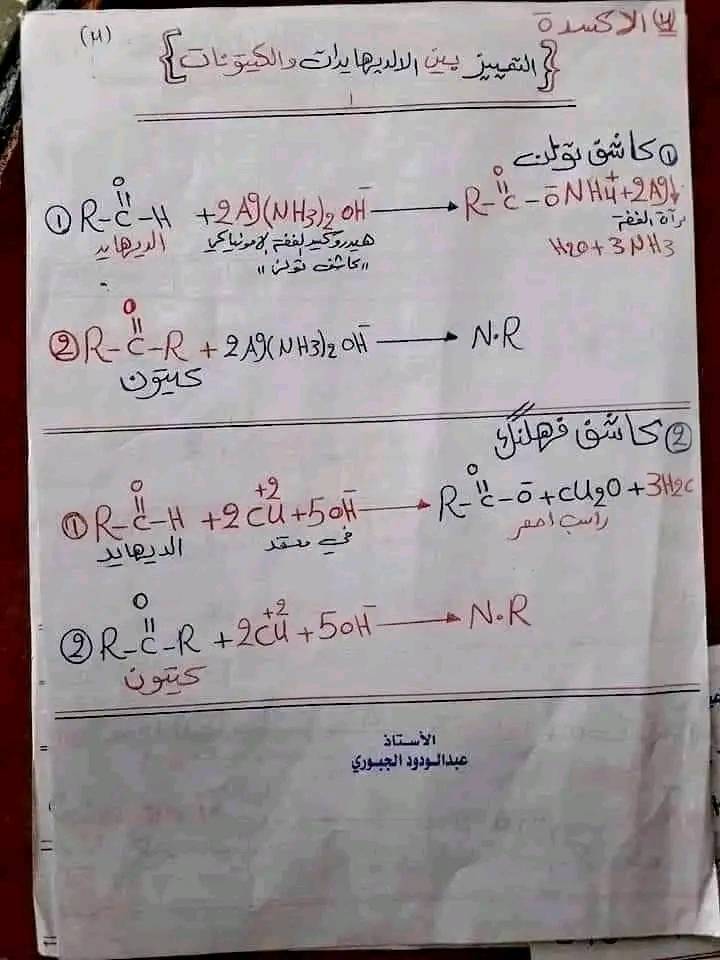 ٣) الاكسدة
(٣)
{التمييز بين الالديهايدات والكيتونات}
① كاشف تولن
O O
① R-C-H +2Ag(NH3)2OH⁻ → R-C-ŌNH4⁺+2Ag↓
الديهايد هيدروكسيد الفضة الامونياكي مرآة الفضة
"كاشف تولن" H2O+3NH3
O
② R-C-R + 2Ag(NH3)2OH⁻ → N.R
كيتون
② كاشف فهلنك
O O
① R-C-H +2Cu⁺²+5OH⁻ → R-C-Ō+CU2O+3H2O
الديهايد في معقد راسب احمر
O
② R-C-R +2Cu⁺²+5OH⁻ → N.R
كيتون
الأستاذ
عبدالودود الجبوري